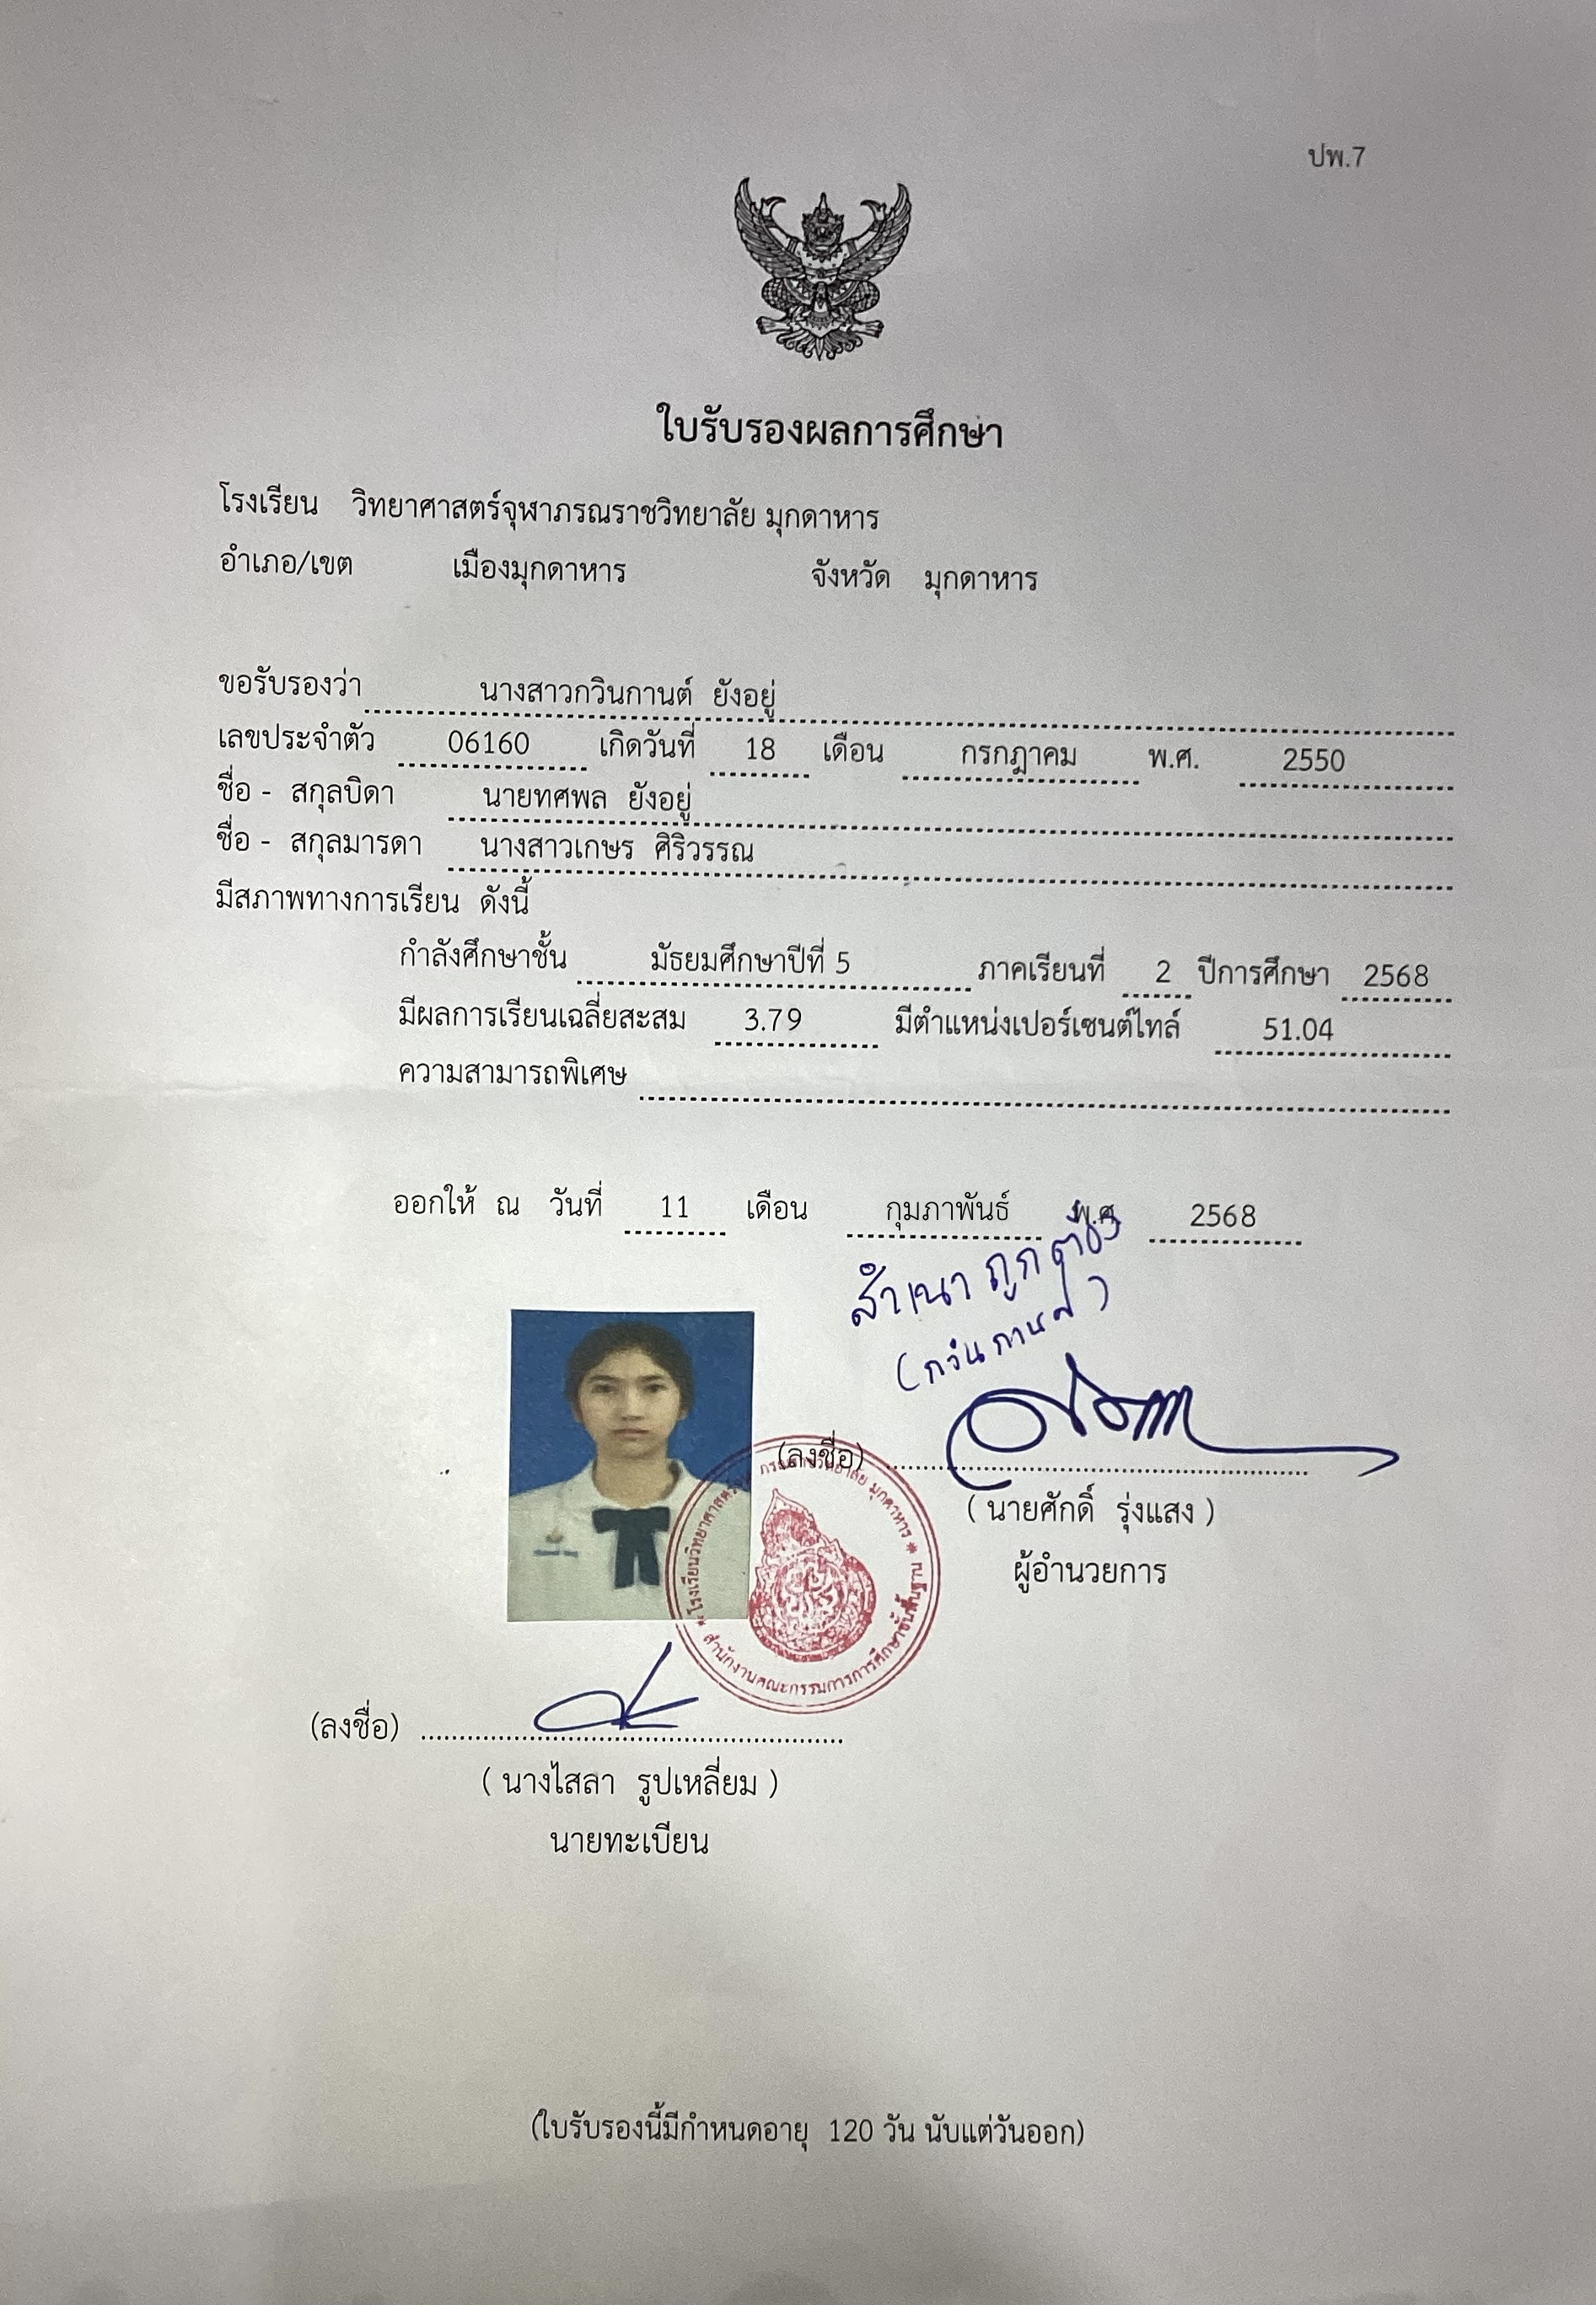 ปพ.7
ใบรับรองผลการศึกษา
โรงเรียน วิทยาศาสตร์จุฬาภรณราชวิทยาลัย มุกดาหาร
อำเภอ/เขต เมืองมุกดาหาร จังหวัด มุกดาหาร
ขอรับรองว่า นางสาวกวินกานต์ ยังอยู่
เลขประจำตัว 06160 เกิดวันที่ 18 เดือน กรกฎาคม พ.ศ. 2550
ชื่อ - สกุลบิดา นายทศพล ยังอยู่
ชื่อ - สกุลมารดา นางสาวเกษร ศิริวรรณ
มีสภาพทางการเรียน ดังนี้
กำลังศึกษาชั้น มัธยมศึกษาปีที่ 5 ภาคเรียนที่ 2 ปีการศึกษา 2568
มีผลการเรียนเฉลี่ยสะสม 3.79 มีตำแหน่งเปอร์เซนต์ไทล์ 51.04
ความสามารถพิเศษ
ออกให้ ณ วันที่ 11 เดือน กุมภาพันธ์ พ.ศ. 2568
สำเนาถูกต้อง
(กวินกานต์)
(ลงชื่อ)
( นายศักดิ์ รุ่งแสง )
ผู้อำนวยการ
* โรงเรียนวิทยาศาสตร์จุฬาภรณราชวิทยาลัย มุกดาหาร *
สำนักงานคณะกรรมการการศึกษาขั้นพื้นฐาน
(ลงชื่อ)
( นางไสลา รูปเหลี่ยม )
นายทะเบียน
(ใบรับรองนี้มีกำหนดอายุ 120 วัน นับแต่วันออก)